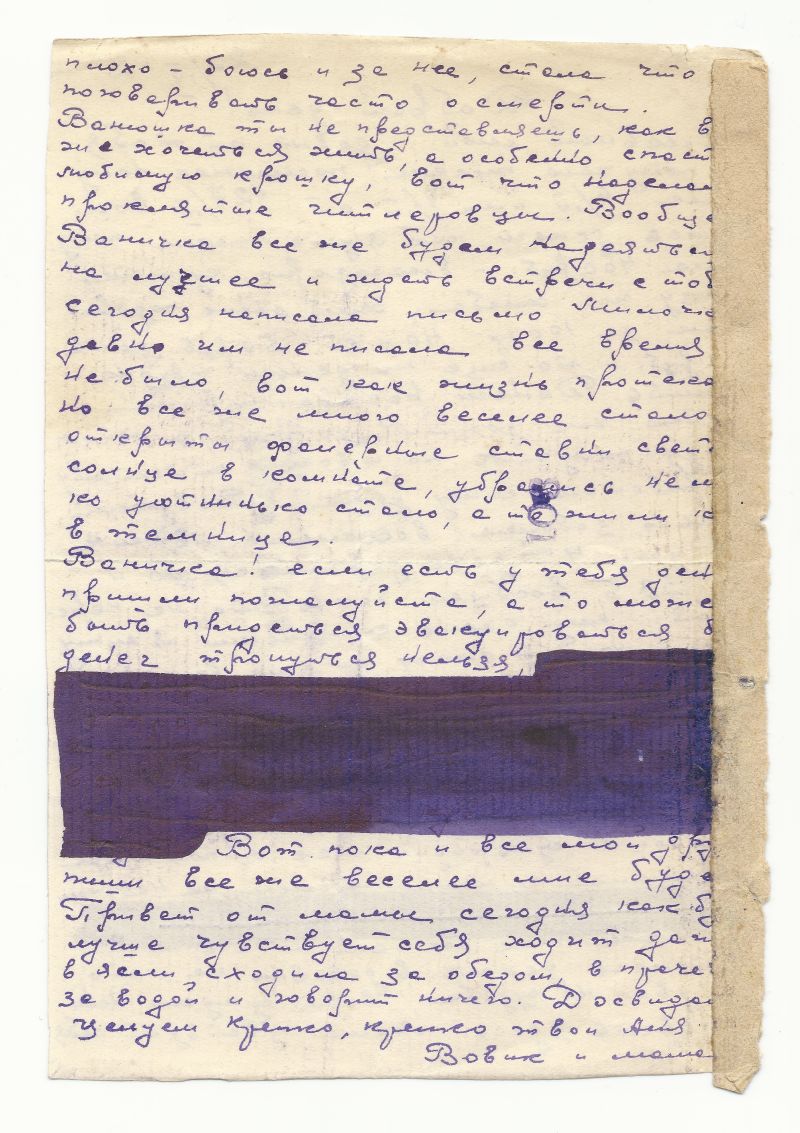 плохо – боюсь и за нее, стала что
поговаривать часто о смерти.
Ванюшка ты не представляешь, как в
же хочеться жить, а особенно спаст
любимую крошку, вот что наделал
проклятые гитлеровцы. Вообще
Ваничка все же будем надеяться
на лучшее и ждать встречи с тоб
сегодня написала письмо Милочке
давно им не писала все время
не было, вот как жизнь протека
но все же много веселее стало
открыты фанерные ставни свет
солнце в комнате, убрались нем
ко уютинько стало, а то жили к
в темнице.
Ваничка! если есть у тебя ден
пришли пожалуйста, а то може
быть придеться эвакуироваться б
денег тронуться нельзя,
Вот пока и все мой дру
пиши все же веселее мне буде
Привет от мамы сегодня как бу
лучше чувствует себя ходит даж
в ясли, сходила за обедом, в праче
за водой и говорит ничего. Досвидан
целуем крепко, крепко твои Аня
Вовик и мама